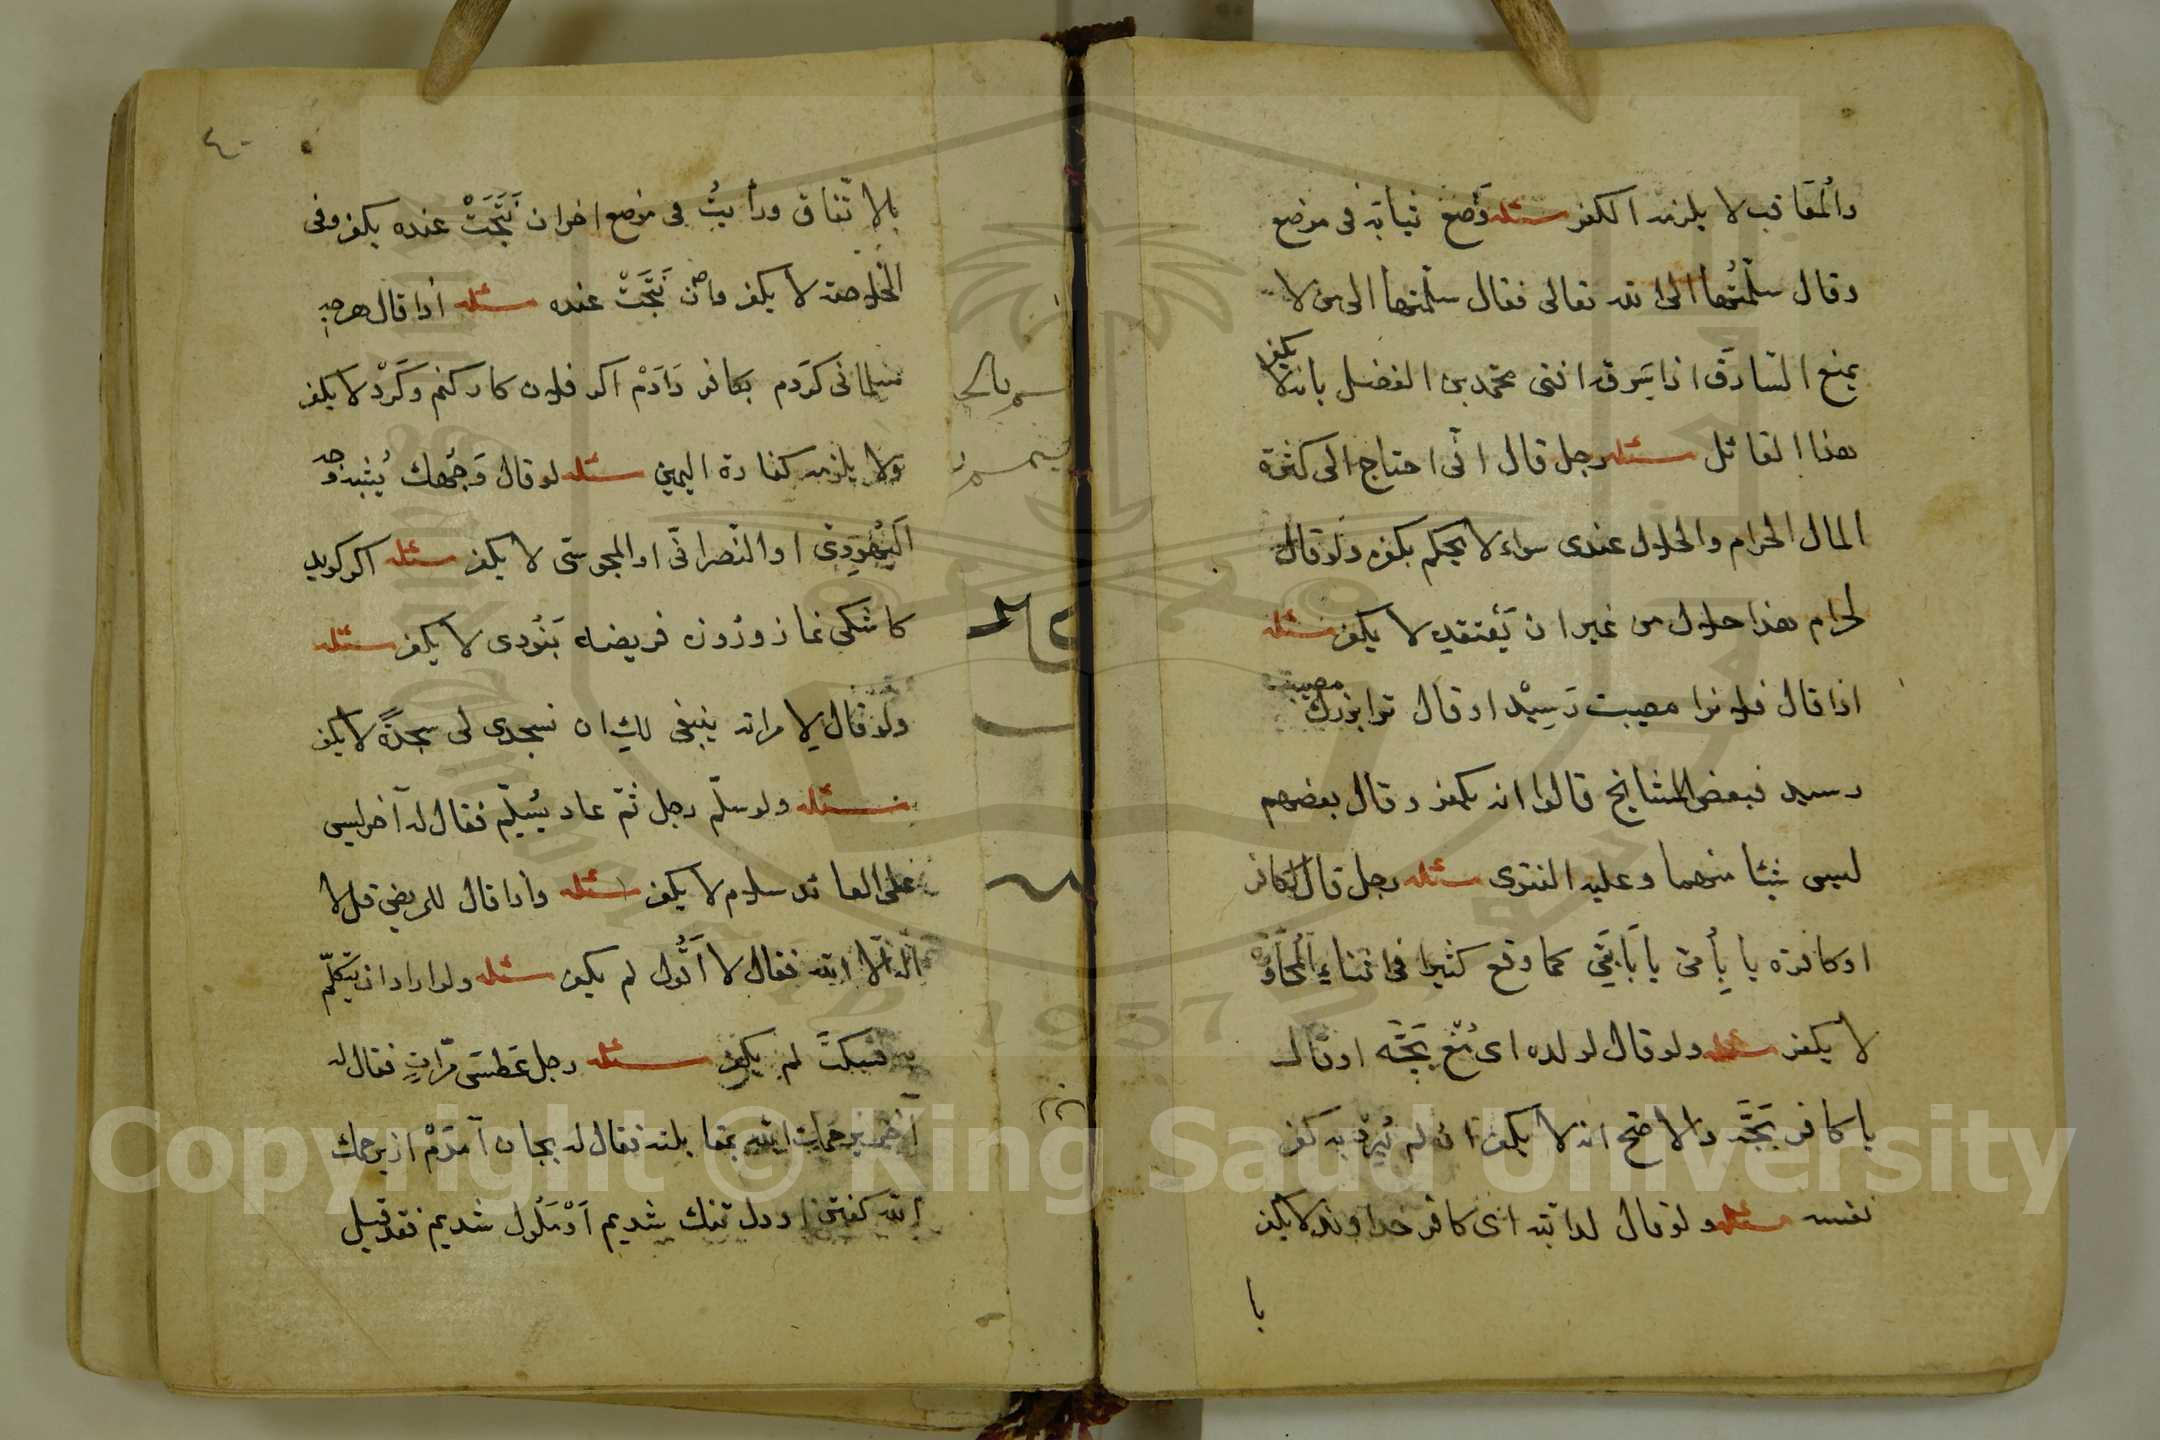 والمعاتب لا يلزمه الكفر مسئله وضع ثيابه في موضع
وقال سلّمتُها الى الله تعالى فقال سلّمتها الى من لا
يمنع السارق اذا سرق افتى محمّد بن الفضل بانه لا يكفر
هذا القائل مسئله رجل قال انّى احتاج الى كثرة
المال الحرام والحلال عندى سواء لا يحكم بكفره ولو قال
لحرام هذا حلال من غير ان يعتقده لا يكفر مسئله
اذا قال فلانرا مصيبت رسِيْد او قال ترا بزرك مصيبت
رسيد فبعض المشايخ قالوا انه يكفر وقال بعضهم
ليس شئا منهما وعليه الفتوى مسئله رجل قال لكافر
او كافرة يا يا كما وقع كثيرا فى اثناء المحاورة
لا يكفر مسئله ولو قال لولده اى مُغ بَچَّه او قال
يا كافر بَچَّه والاصح انه لا يكفر ان لم يُرِدْ به كفر
نفسه مسئله ولو قال لدابته اى كافر خداوند لا يكفر
با
٤٠
بالاتّفاق ورأيتُ فى موضع اخر ان نَتَجَتْ عنده يكفر وفى
الخلاصة لا يكفر وان نَتَجَتْ عنده مسئله اذا قال هرچه
مسلمانى كَرَدم بكافر دَادَمْ اكر فلان كار كنم وكَرْد لا يكفر
ولا يلزمه كفارة اليمين مسئله لو قال وَجْهك يُشْبه وجه
اليَهُودِىّ او النّصرانىّ او المجوسىّ لا يكفر مسئله اكر كويد
كاشكى نماز وروزه فريضه نبُودى لا يكفر مسئله
ولو قال لامراته ينبغى لكِ ان تسجدى لى سجدَةً لا يكفر
مسئله ولو سلّم رجل ثمّ عاد يُسَلِّم فقال له آخر ليس
على العائد سلام لا يكفر مسئله واذا قال للمريض قل لا
اله الا الله فقال لا اَقُول لم يكفر مسئله ولو اراد ان يتكلّم
فسكتَ لم يكفر مسئله رجل عَطَسَ مرّاتٍ فقال له
آخر يرحمك الله بمقابلته فقال له بجان آمدَمْ از يرحمك
الله كفتن او دل تنك شديم اَوْ مَلُول شديم فقد قيل